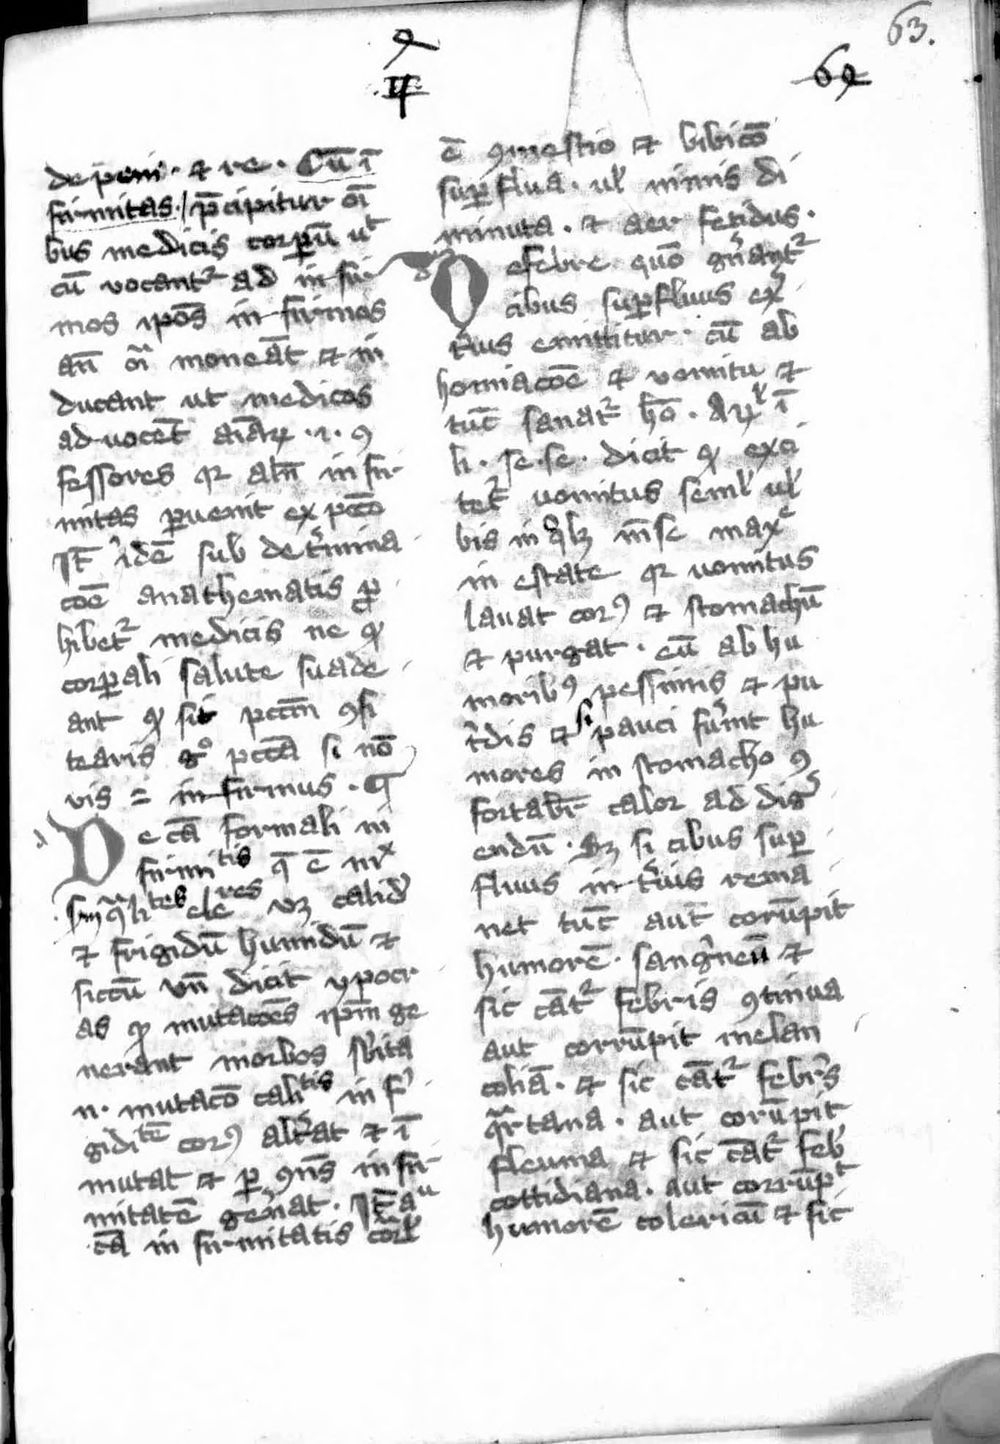 63.
62
II
de peni. et re. Cu᷃ i᷃
firmitas. p᷃cipitur oi᷃
bus medicis corpu᷃ ut
cu᷃ vocantr ad in fir
mos ip᷃os in firmos
an᷃ oi᷃a monea᷃t et in
ducant ut medicos
ad vocet᷃ ai᷃aꝝ .i. ꝯ
fessores qꝛ aln᷃ in fir
mitas ꝑvenit ex pcc᷃o
It᷃ ide᷃ sub det᷃mina
co᷃e anathematis ꝓ
hibetr medicis ne ꝙ
corꝑali salute suade
ant ꝙ sit pcc᷃m ꝯsi
tearis gͦ pcc᷃a si no᷃
vis = in firmus .
De ca᷃ formali in
firmitis q᷃ e᷃ mx
siiqͣlittes eleres vꝫ calid᷃
et frigidu᷃ humidu᷃ et
siccu᷃ vn᷃ dicit ypocr
as ꝙ mutaco᷃es ip᷃m ge
nerant morbos sb᷃ita
n. mutaco᷃ calitis in f᷃i
giditte᷃ corꝰ alt᷃at et i᷃
mutat et ꝑ ꝯn᷃s in fir
mitate᷃ gen᷃at. It᷃ au
ca᷃ in firmitatis cor᷃l
e᷃ ꝯmestio et bibico᷃
suꝑflua. ul᷃ nimis di
minuta. et aer fetidus.
De febre quo᷃ gn᷃antr
cibus suꝑfluus ex
t᷃ius emittitur. cu᷃ ab
homiaco᷃e et vomitu et
tu᷃c sanatr ho᷃. Arl i᷃
li. se. se. dicit ꝙ exci
tetr vomitus seml᷃ ul᷃
bis in qͦlꝫ m᷃se maxe
in estate qꝛ vomitus
lavat corꝰ et stomachu᷃
et purgat. cu᷃ ab hu
moribꝰ pessimis et pu
t᷃dis et si pauci fu᷃int hu
mores in stomacho ꝯ
fortabr᷃ calor ad dig᷃
endu᷃. Sꝫ si cibus suꝑ
fluus in t᷃ius rema
net tu᷃c aut coru᷃pit
humore᷃ sang᷃neu᷃ et
sic ca᷃tr febris ꝯtinua
aut corru᷃pit melan
colia᷃. et sic ca᷃tr febr᷃s
qͣrtana. aut coru᷃pit
fleuma et sic ca᷃tr feb᷃
cottidiana. aut corru᷃pt
humore᷃ colericu᷃ et sic